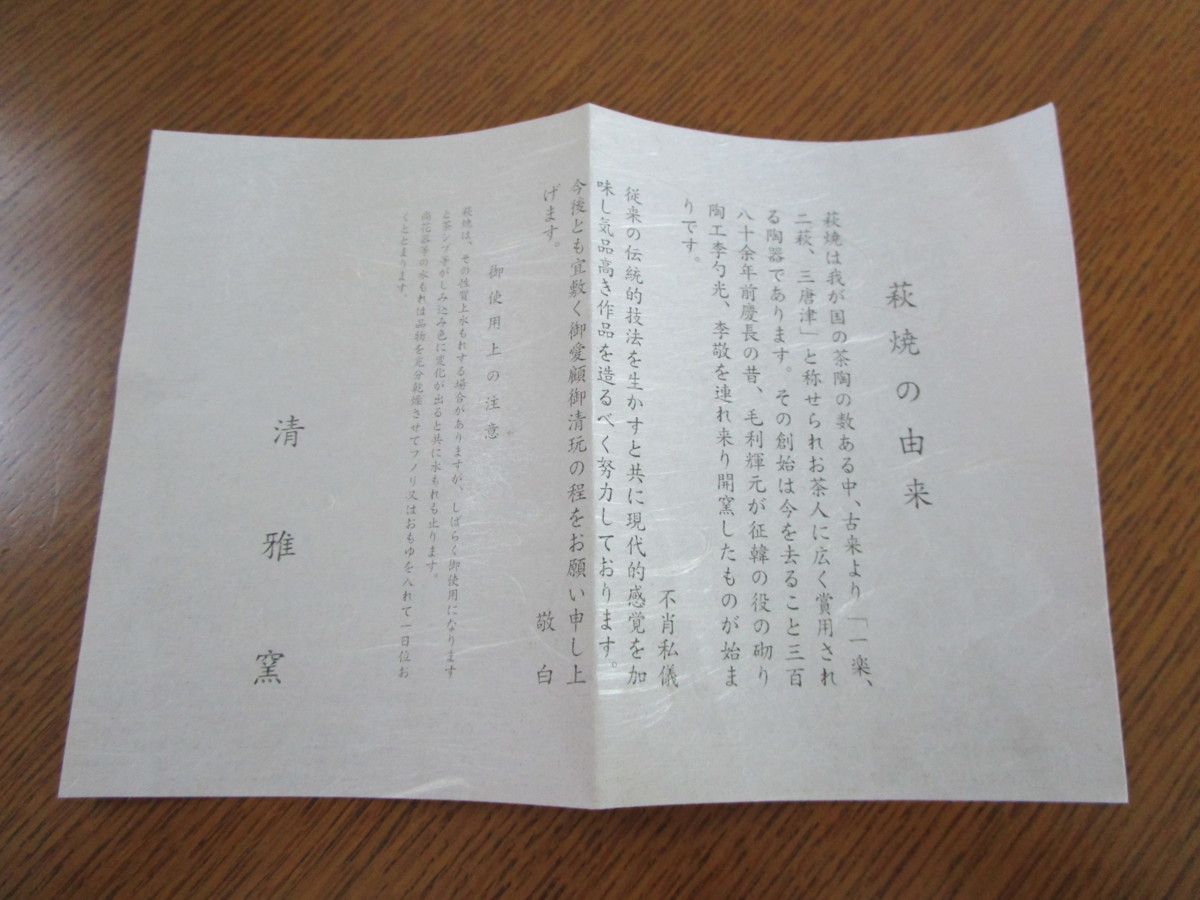 萩焼の由来
萩焼は我が国の茶陶の数ある中、古来より「一楽、
二萩、三唐津」と称せられお茶人に広く賞用され
る陶器であります。その創始は今を去ること三百
八十余年前慶長の昔、毛利輝元が征韓の役の砌り
陶工李勺光、李敬を連れ来り開窯したものが始ま
りです。
不肖私儀
従来の伝統的技法を生かすと共に現代的感覚を加
味し気品高き作品を造るべく努力しております。
今後とも宜敷く御愛顧御清玩の程をお願い申し上
げます。
敬白
御使用上の注意
萩焼は、その性質上水もれする場合がありますが、しばらく御使用になります
と茶シブ等がしみ込み色に変化が出ると共に水もれも止ります。
尚花器等の水もれは品物を充分乾燥させてフノリ又はおもゆを入れて一日位お
くととまります。
清雅窯